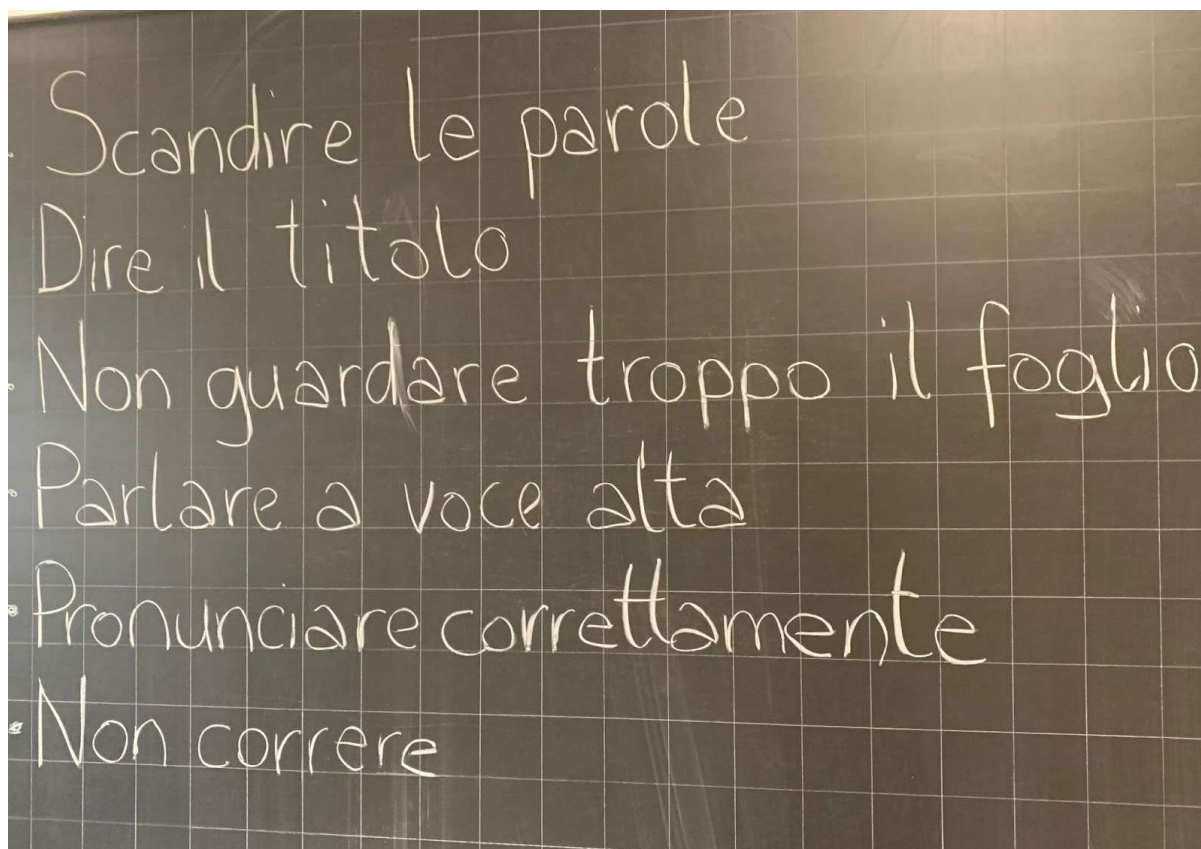 Scandire le parole
Dire il titolo
Non guardare troppo il foglio
Parlare a voce alta
Pronunciare correttamente
Non correre